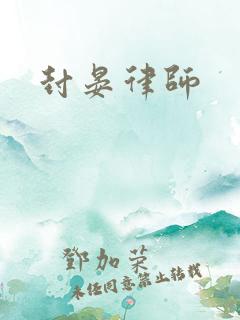 封晏律师
鄧加荣
未经同意禁止转载